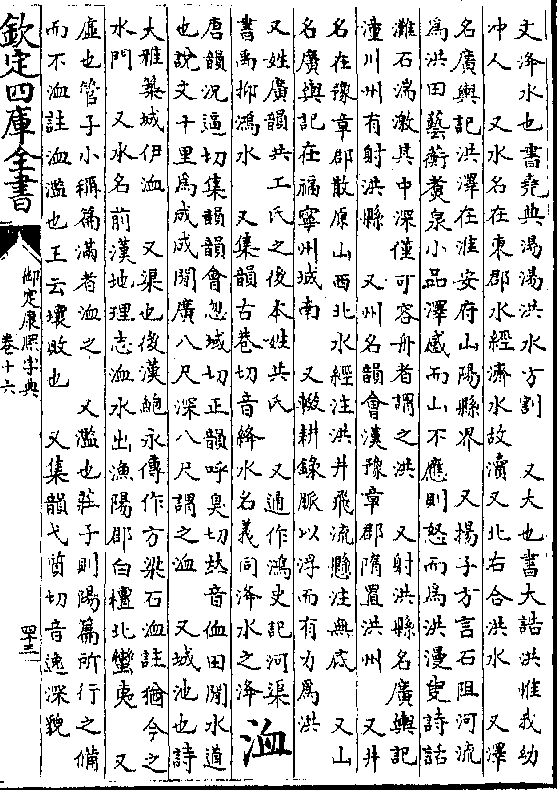 文洚水也書堯典湯湯洪水方割　又大也書大誥洪惟我幼
冲人　又水名在東郡水經濟水故瀆又北右合洪水　又澤
名廣輿記洪澤在淮安府山陽縣界　又揚子方言石阻河流
為洪田藝蘅煑泉小品澤感而山不應則怒而為洪漫叟詩話
灘石湍激其中深僅可容舟者謂之洪　又射洪縣名廣輿記
潼川州有射洪縣　又州名韻會漢豫章郡隋置洪州　又井
名在豫章郡散原山西北水經注洪井飛流懸注無底　又山
名廣輿記在福寧州城南　又輟耕錄脈以浮而有力為洪
又姓廣韻共工氏之後本姓共氏　又通作鴻史記河渠
書禹抑鴻水　又集韻古巷切音絳水名義同洚水之洚
洫
唐韻況逼切集韻韻會忽域切正韻呼臭切𠀤音侐田閒水道
也說文十里為成成閒廣八尺深八尺謂之洫　又城池也詩
大雅築城伊洫　又渠也後漢鮑永傳作方梁石洫註猶今之
水門　又水名前漢地理志洫水出漁陽郡白檀北蠻夷　又
虛也管子小稱篇滿者洫之　又濫也莊子則陽篇所行之備
而不洫註洫濫也王云壞敗也　又集韻弋質切音逸深貌
欽定四庫全書
御定康熙字典
卷十六
四十三